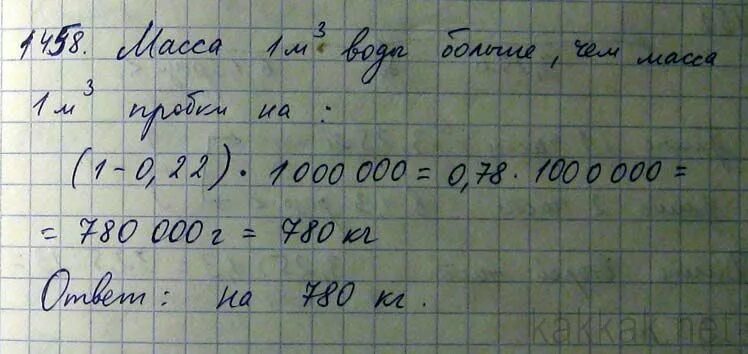 1458. Масса 1 м³ воды больше, чем масса
1 м³ пробки на :
(1 - 0,22) · 1 000 000 = 0,78 · 1000 000 =
= 780 000 г = 780 кг
Ответ : на 780 кг.
kakkak.net